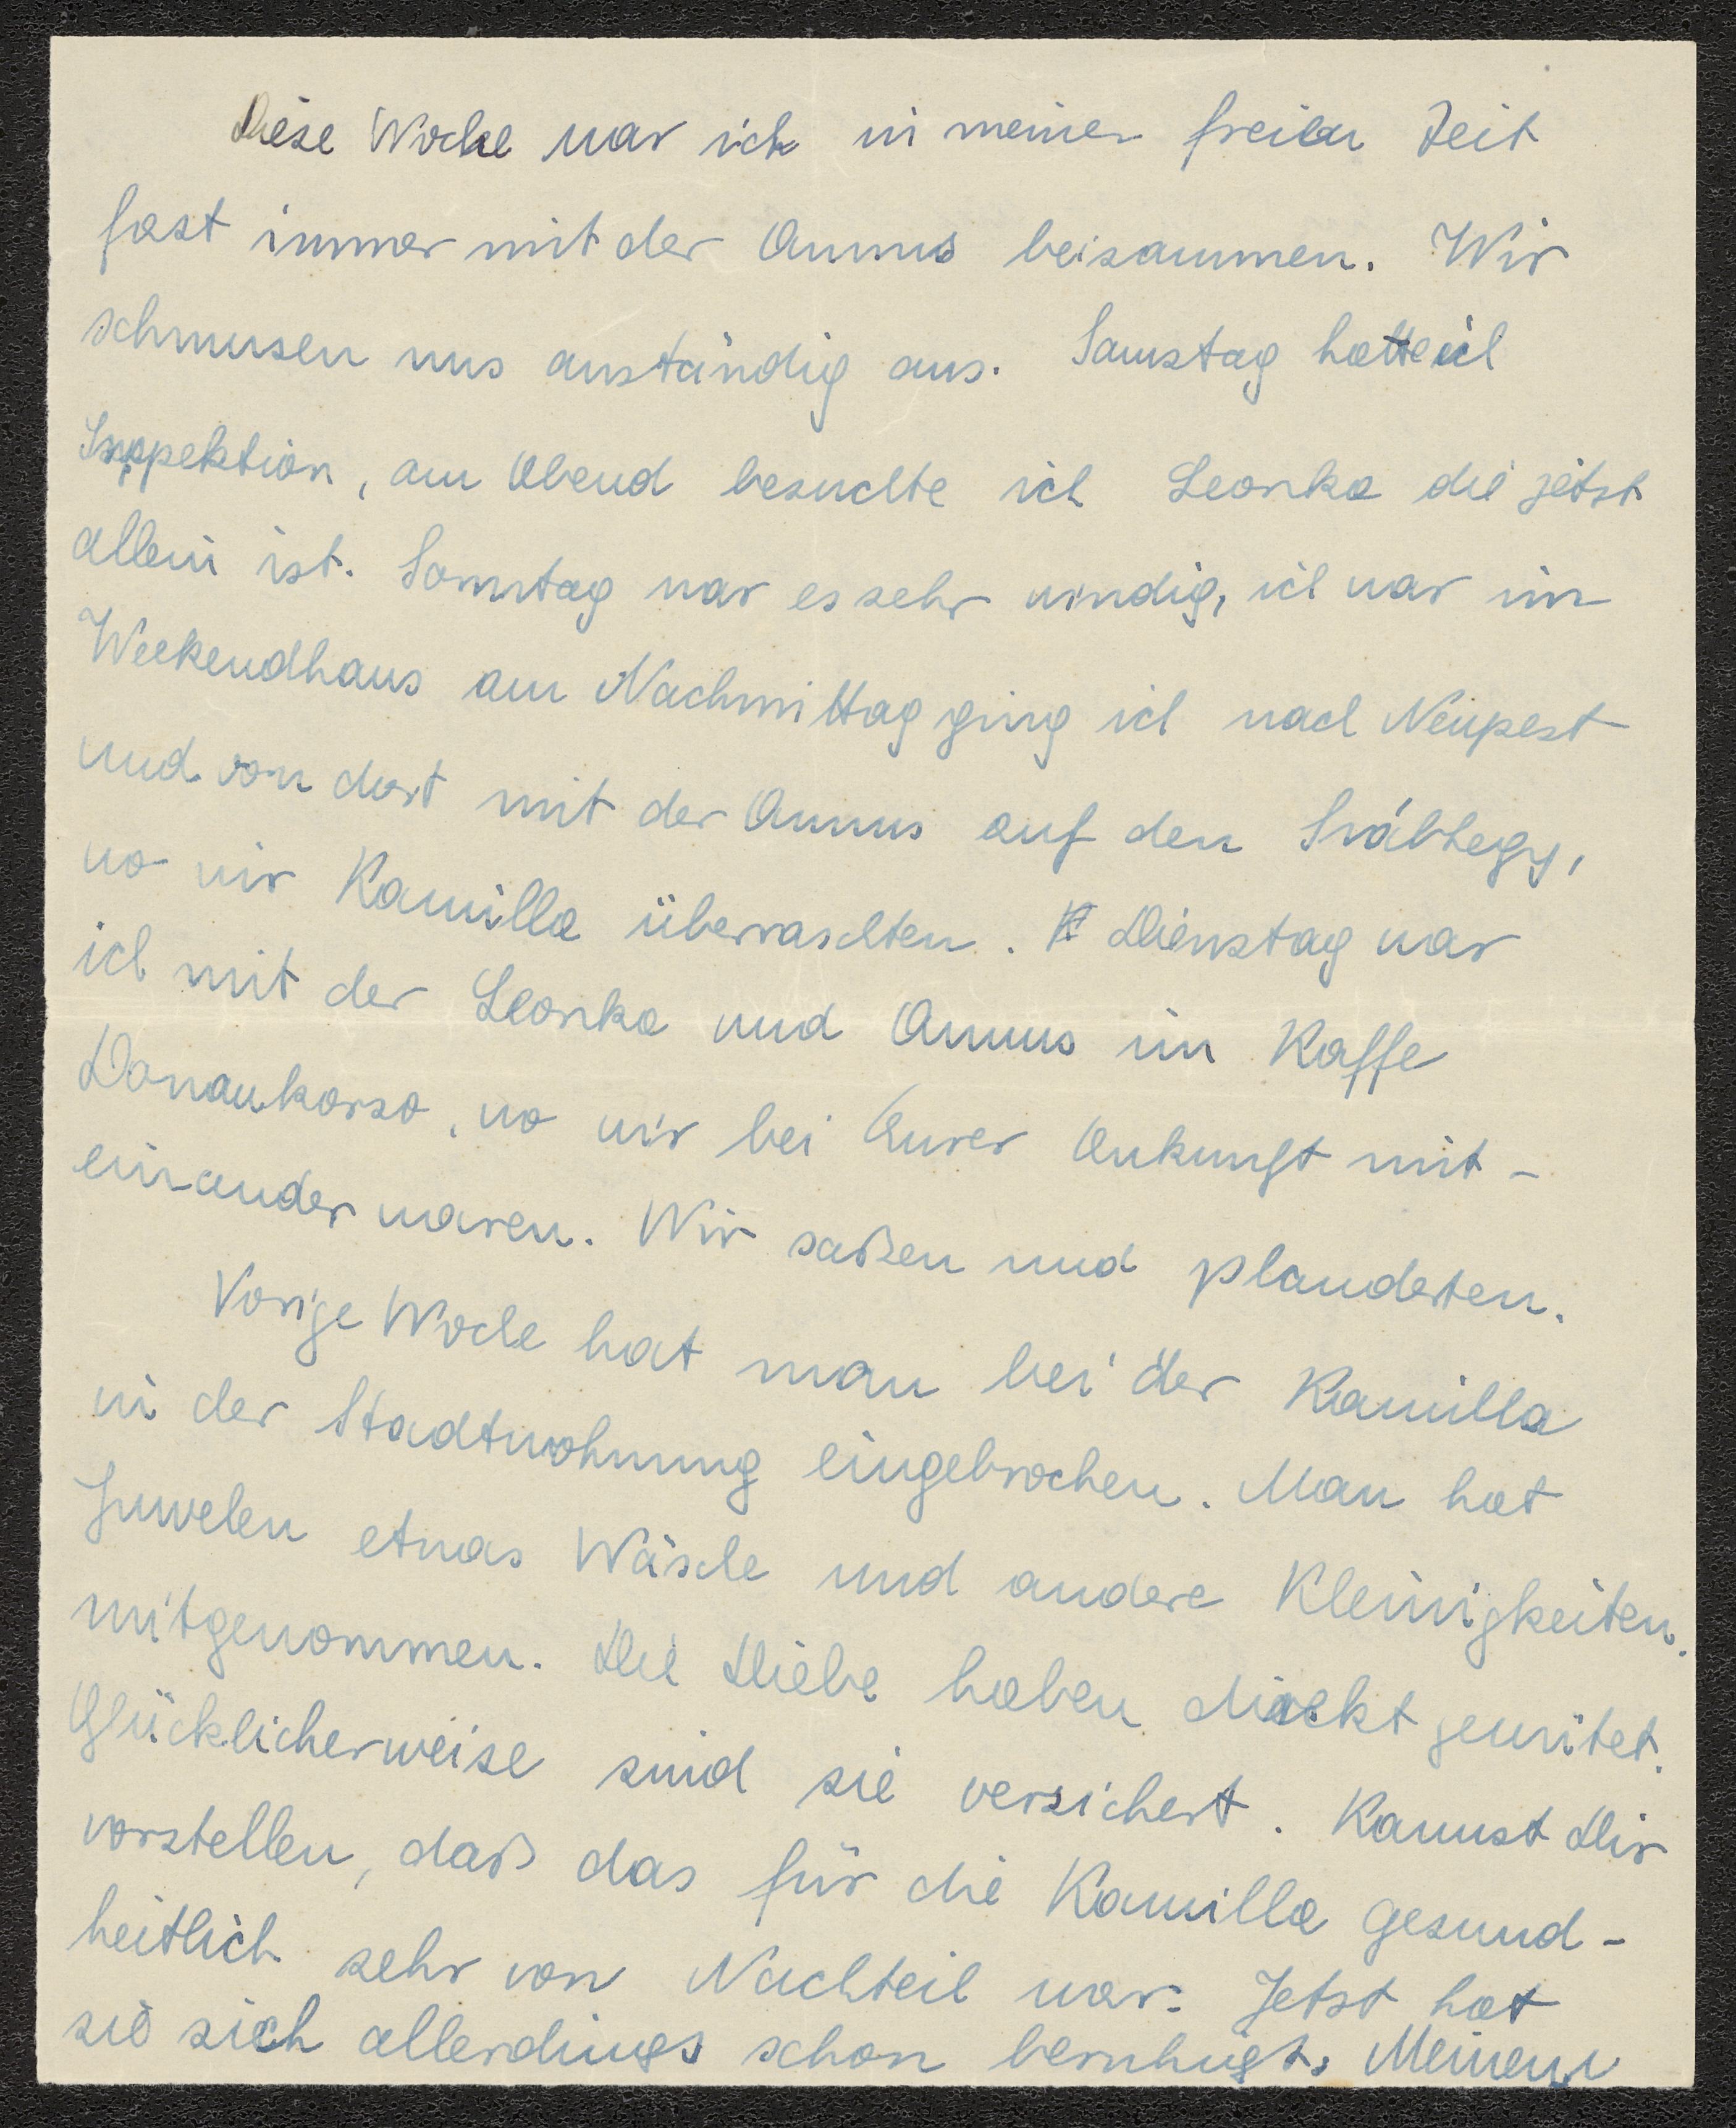 Diese Woche war ich in meiner freien Zeit
fast immer mit der Annus beisammen. Wir
schmusen uns anständig aus. Samstag hatte ich
Inspektion, am Abend besuchte ich Leonka die jetzt
allein ist. Sonntag war es sehr windig, ich war im
Weekendhaus am Nachmittag ging ich nach Neupest
und von dort mit der Annus auf den Svábhegy,
wo wir Kamilla überraschten. Dienstag war
ich mit der Leonka und Annus im Kaffe
Donaukorso, wo wir bei Eurer Ankunft mit-
einander waren. Wir saßen und plauderten.
Vorige Woche hat man bei der Kamilla
in der Stadtwohnung eingebrochen. Man hat
Juwelen etwas Wäsche und andere Kleinigkeiten.
mitgenommen. Die Diebe haben direkt gewütet.
Glücklicherweise sind sie versichert. Kannst Dir
vorstellen, daß das für die Kamilla gesund-
heitlich sehr von Nachteil war. Jetzt hat
sie sich allerdings schon beruhigt. Meinem